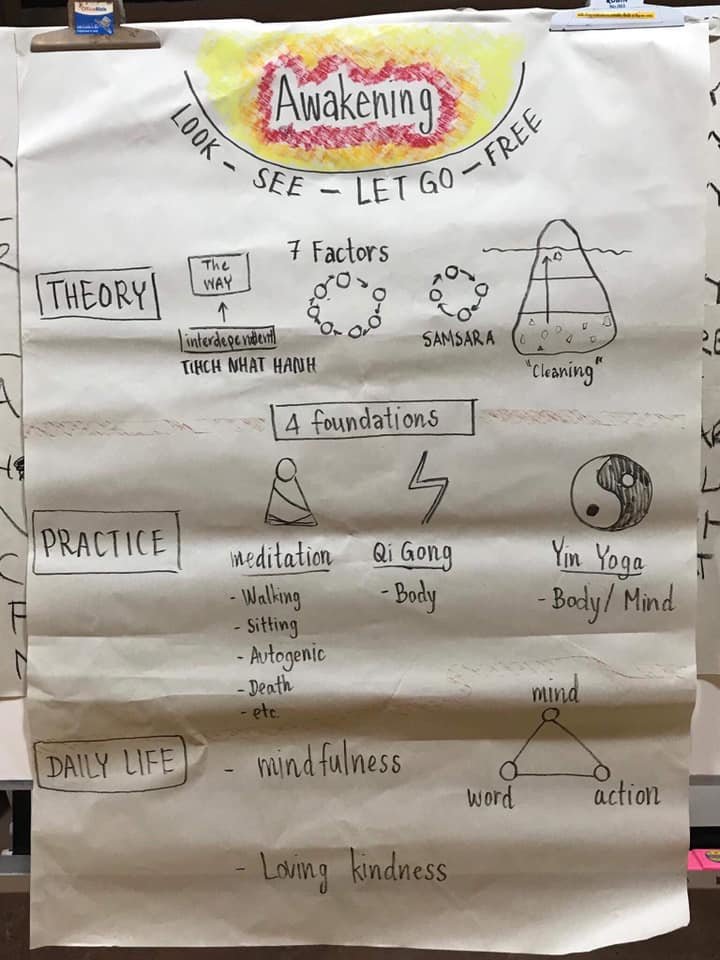 Awakening
LOOK - SEE - LET GO - FREE
THEORY
The
WAY
interdependent
TIHCH NHAT HANH
7 Factors
SAMSARA
"Cleaning"
4 foundations
PRACTICE
meditation
- Walking
- Sitting
- Autogenic
- Death
- etc.
Qi Gong
- Body
Yin Yoga
- Body/ Mind
DAILY LIFE
- mindfulness
- Loving kindness
mind
word
action